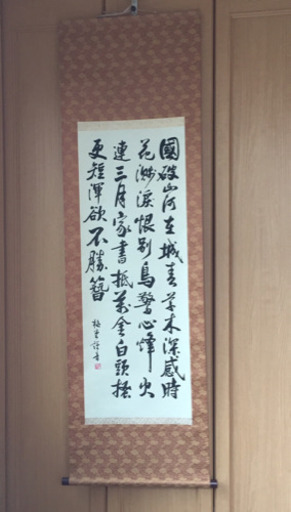 國破山河在城春草木深感時
花濺淚恨別鳥驚心烽火
連三月家書抵萬金白頭搔
更短渾欲不勝簪